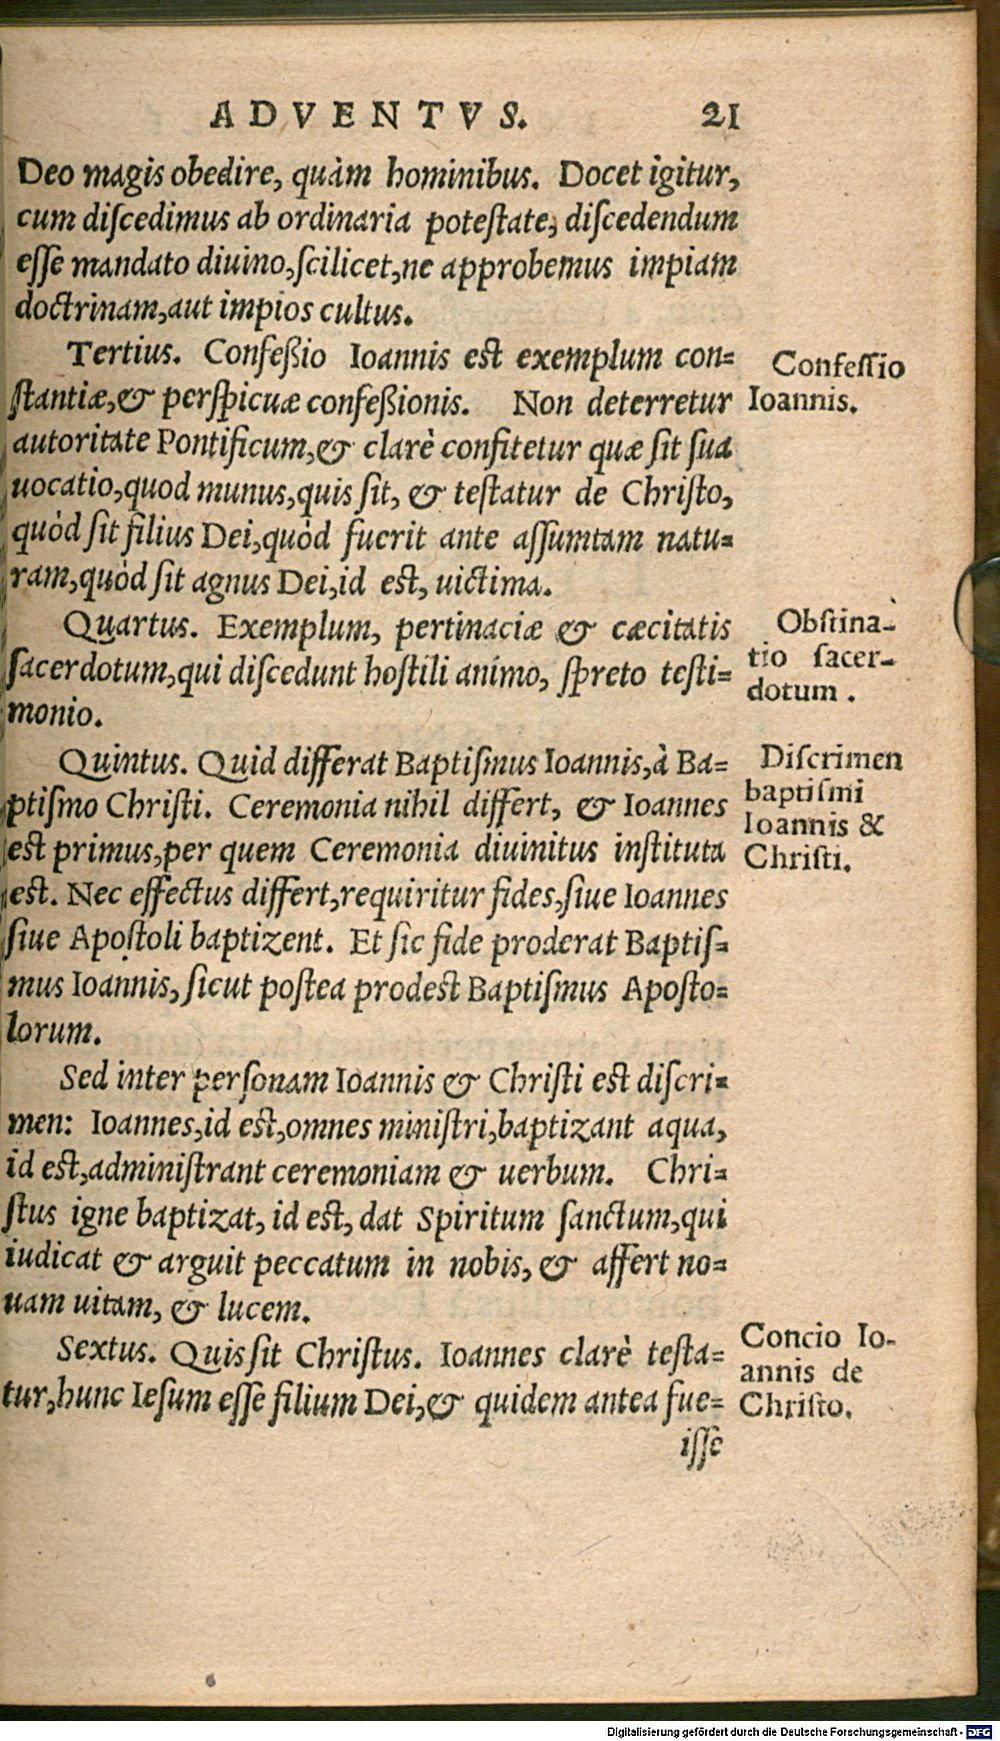 ADVENTVS. 21
Deo magis obedire, quàm hominibus. Docet igitur,
cum diſcedimus ab ordinaria poteſtate, diſcedendum
eſſe mandato diuino, ſcilicet, ne approbemus impiam
doctrinam, aut impios cultus.
Tertius. Confeßio Ioannis est exemplum con=
ſtantiæ, & perſpicuæ confeßionis. Non deterretur
autoritate Pontificum, & clarè confitetur quæ ſit ſua
uocatio, quod munus, quis ſit, & teſtatur de Chriſto,
quòd ſit filius Dei, quòd fuerit ante aſſumtam natu=
ram, quòd ſit agnus Dei, id est, uictima.
Confeſſio
Ioannis.
Quartus. Exemplum, pertinaciæ & cæcitatis
ſacerdotum, qui diſcedunt hoſtili animo, ſpreto teſti=
monio.
Obſtina-
tio ſacer-
dotum.
Quintus. Quid differat Baptiſmus Ioannis, à Ba=
ptiſmo Chriſti. Ceremonia nihil differt, & Ioannes
est primus, per quem Ceremonia diuinitus inſtituta
est. Nec effectus differt, requiritur fides, ſiue Ioannes
ſiue Apoſtoli baptizent. Et ſic fide proderat Baptiſ=
mus Ioannis, ſicut poſtea prodest Baptiſmus Apoſto=
lorum.
Diſcrimen
baptiſmi
Ioannis &
Chriſti.
Sed inter perſonam Ioannis & Chriſti est diſcri=
men: Ioannes, id est, omnes miniſtri, baptizant aqua,
id est, adminiſtrant ceremoniam & uerbum. Chri=
ſtus igne baptizat, id est, dat Spiritum ſanctum, qui
iudicat & arguit peccatum in nobis, & affert no=
uam uitam, & lucem.
Sextus. Quis ſit Chriſtus. Ioannes clarè teſta=
tur, hunc Ieſum eſſe filium Dei, & quidem antea fue=
iſſe
Concio Io-
annis de
Chriſto.
Digitalisierung gefördert durch die Deutsche Forschungsgemeinschaft - DFG